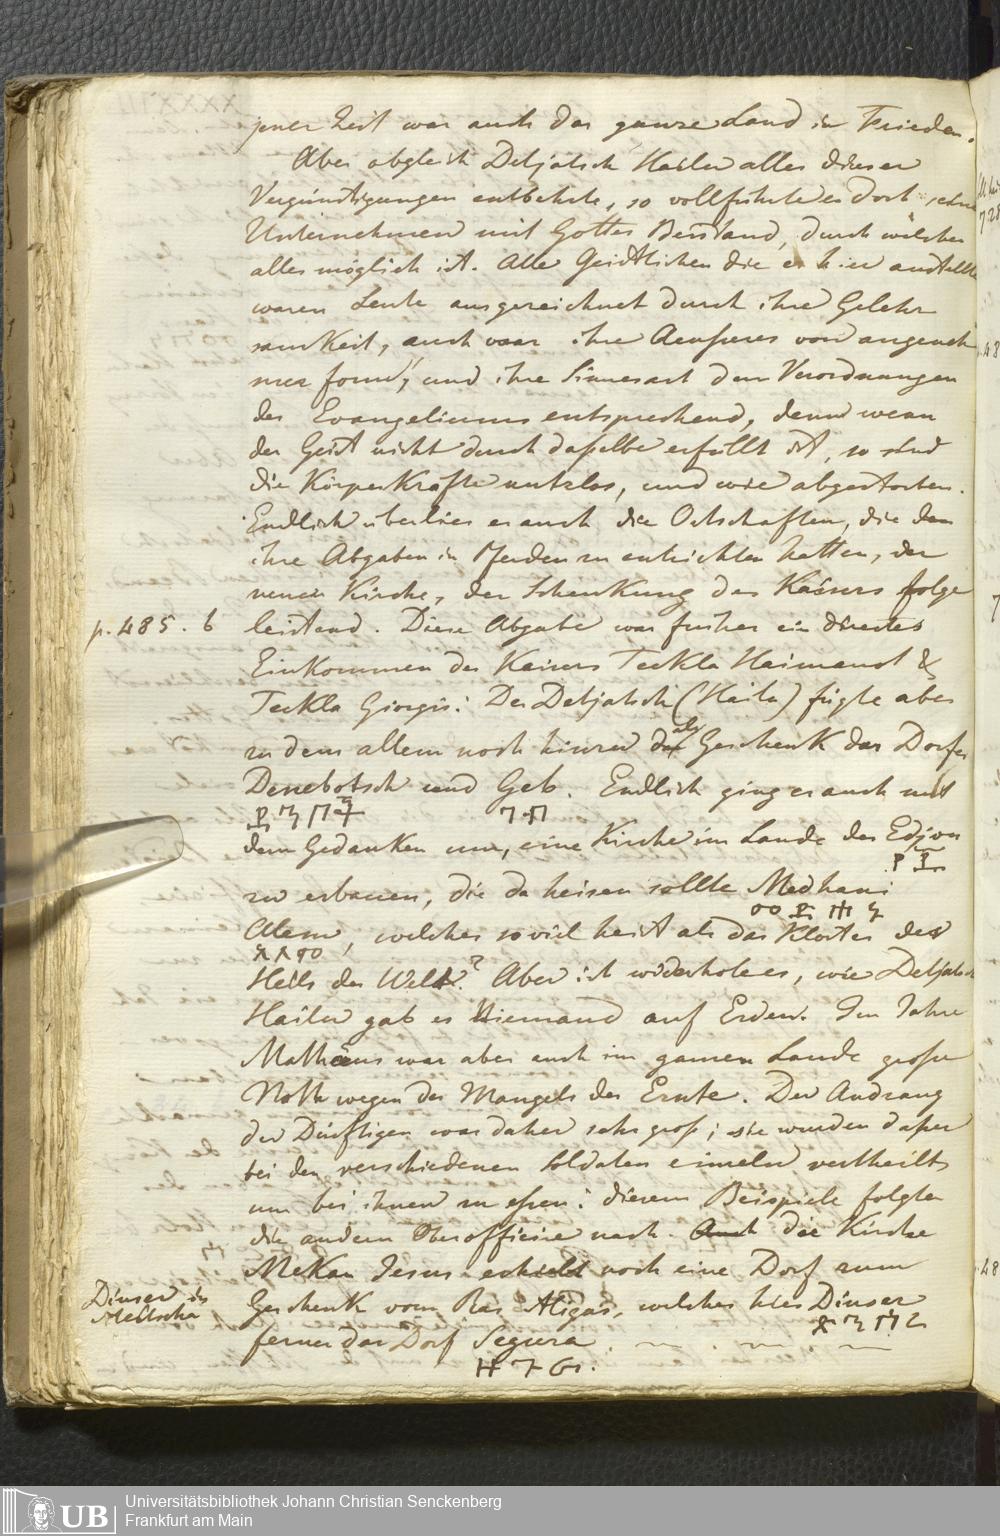 jener Zeit war auch das ganze Land in Frieden.
Aber obgleich Detjatsch Hailu alles dieser
Vergünstigungen entbehrte, so vollführte er dort sein
Unternehmen mit Gottes Beistand, durch welchen
alles möglich ist. Alle Geistlichen die er hier anstellte
waren Leute ausgezeichnet durch ihre Gelehr
samkeit, auch war ihre Aeuseres von angeneh
mer form, und ihre Sinnesart den Verordnungen
des Evangeliums entsprechend, denn wenn
der Geist nicht durch daßelbe erfüllt ist, so sind
die Körperkräfte nutzlos, und wie abgestorben.
Endlich überlies er auch die Ortschaften, die dem
ihre Abgaben in zu entrichten hatten, der
neuen Kirche, der Schenkung des Kaisers folge
p. 485. b leistend. Diese Abgabe war früher ein directes
Einkommen der Kaiser Teckla Haimanot &
Teckla Giorgis. Der Detjatsch (Hailu) fügte aber
zu dem allem noch hinzu als Geschenk das Dorf
Denebotsch und Geb. Endlich ging er auch mit
ደንቦች ግብ
dem Gedanken um, eine Kirche im Lande der Edjou
zu erbauen, die da heisen sollte Medhani
መድኃኒ
Alem, welches soviel heist als das Kloster des
ዓለም
Heils der Welt? Aber ich wiederhole es, wie Detjatsch
Hailu gab es Niemand auf Erden. Im Jahre
Mathäus war aber auch im ganzen Lande große
Noth wegen des Mangels der Ernte. Der Andrang
der Dürftigen war daher sehr groß; sie wurden daher
bei den verschiedenen Soldaten einzeln vertheilt
um bei ihnen zu eßen: diesem Beispiele folgten
die andern Oberofficire nach. Auch die Kirche
Mekan Jesus erhielt noch eine Dorf zum
Dinser in
Geschenk vom Ras Aligas, welches hies Dinser
ferner das Dorf Segura